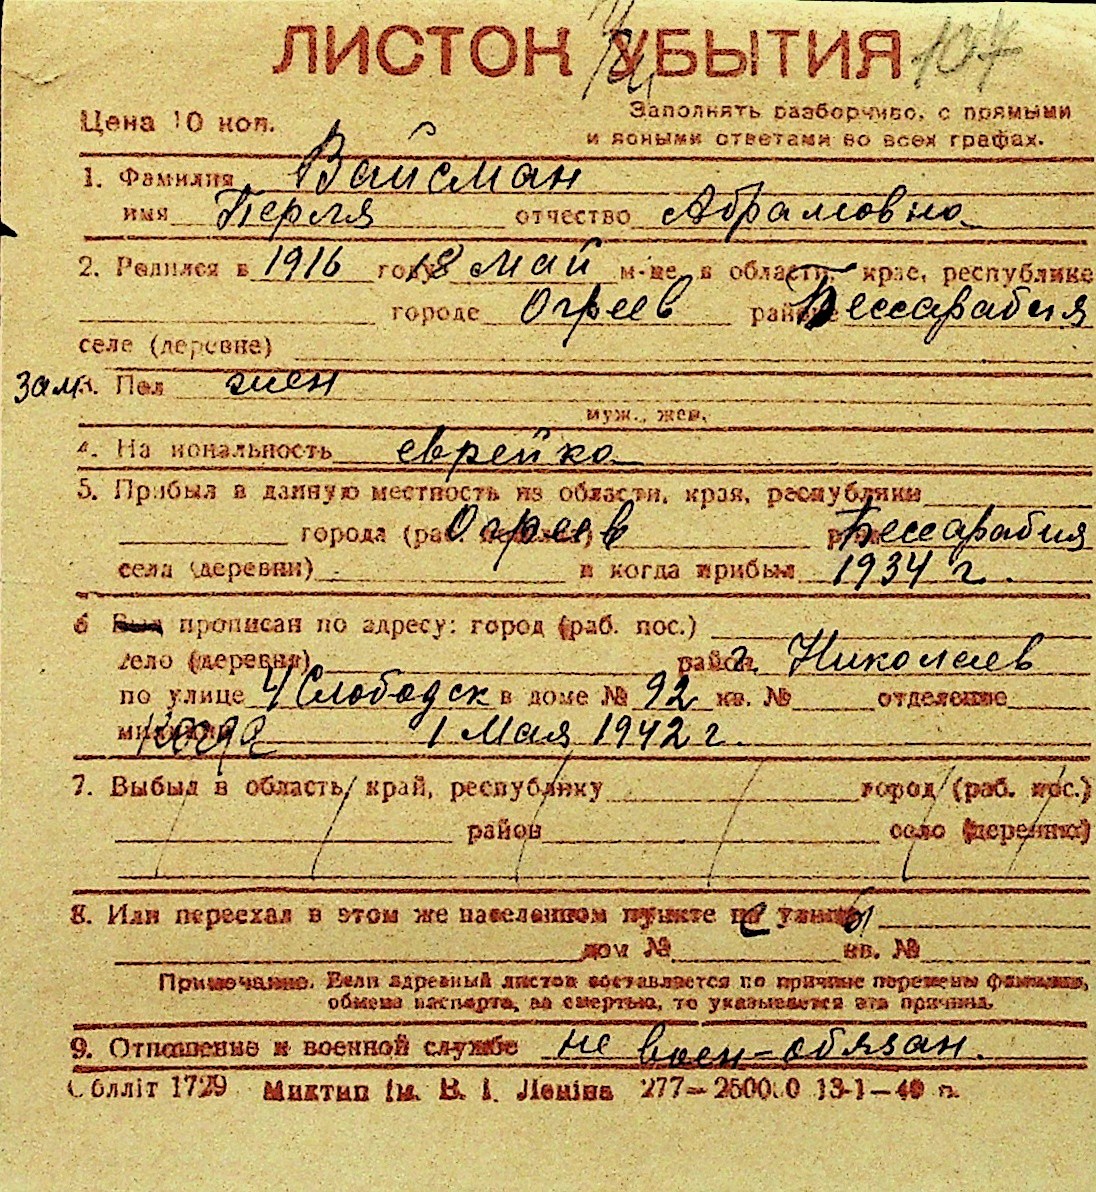 ЛИСТОК УБЫТИЯ 107
Цена 10 коп.
Заполнять разборчиво, с прямыми
и ясными ответами во всех графах.
1. Фамилия Вайсман
имя Перля отчество Абрамовна
2. Родился в 1916 году 18 май м-це, в области, крае, республике
городе Огреев районе Бессарабия
селе (деревне)
Зам. 3. Пол жен
муж., жен.
4. Национальность еврейка
5. Прибыл в данную местность из области, края, республики
города (раб. поселка) Огреев Бессарабия
села (деревни) и когда прибыл 1934 г.
6 Был прописан по адресу: город (раб. пос.)
село (деревня) район г. Николаев
по улице 4 Слободск в доме № 92 кв. № отделение
милиции когда 1 Мая 1942 г.
7. Выбыл в область, край, республику город (раб. пос.)
район село (деревню)
8. Или переехал в этом же населенном пункте с улицы
дом № кв. №
Примечание. Если адресный листок составляется по причине перемены фамилии,
обмена паспорта, за смертью, то указывается эта причина.
9. Отношение к военной службе не воен-обязан.
Облліт 1729 Миктип Ім. В. І. Леніна 277—250000 13-1—40 р.